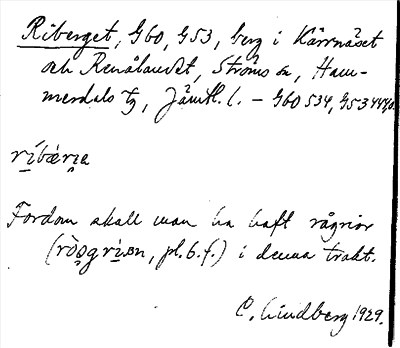 Riberget, G60, G53, berg i Kärrnäset
och Renålandet, Ströms sn, Ham-
merdals tg, Jämtl. l. – G60 534, G53 444,0.
ríbærɪa
Fordom skall man ha haft rågrior
(ròogrìɴ, pl. b. f.) i denna trakt.
C. Lindberg 1929.